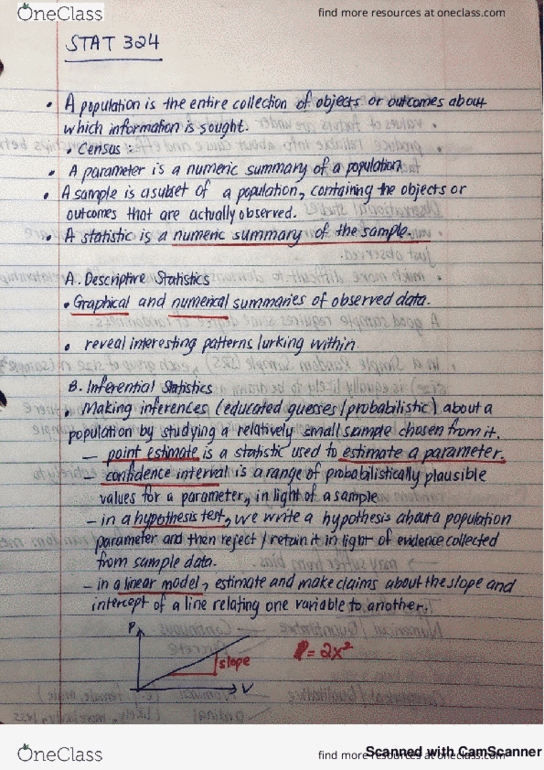 OneClass
find more resources at oneclass.com
STAT 324
• A population is the entire collection of objects or outcomes about
which information is sought.
• Census :
• A parameter is a numeric summary of a population
• A sample is a subset of a population, containing the objects or
outcomes that are actually observed.
• A statistic is a numeric summary of the sample.
A. Descriptive Statistics
• Graphical and numerical summaries of observed data.
• reveal interesting patterns lurking within.
B. Inferential Statistics
• Making inferences (educated guesses/probabilistic) about a
population by studying a relatively small sample chosen from it.
— point estimate is a statistic used to estimate a parameter.
— confidence interval is a range of probabilistically plausible
values for a parameter, in light of a sample
— in a hypothesis test, we write a hypothesis about a population
parameter and then reject / retain it in light of evidence collected
from sample data.
— in a linear model, estimate and make claims about the slope and
intercept of a line relating one variable to another.
P
slope
V
= 2x²
OneClass
find more resources at oneclass.com
Scanned with CamScanner